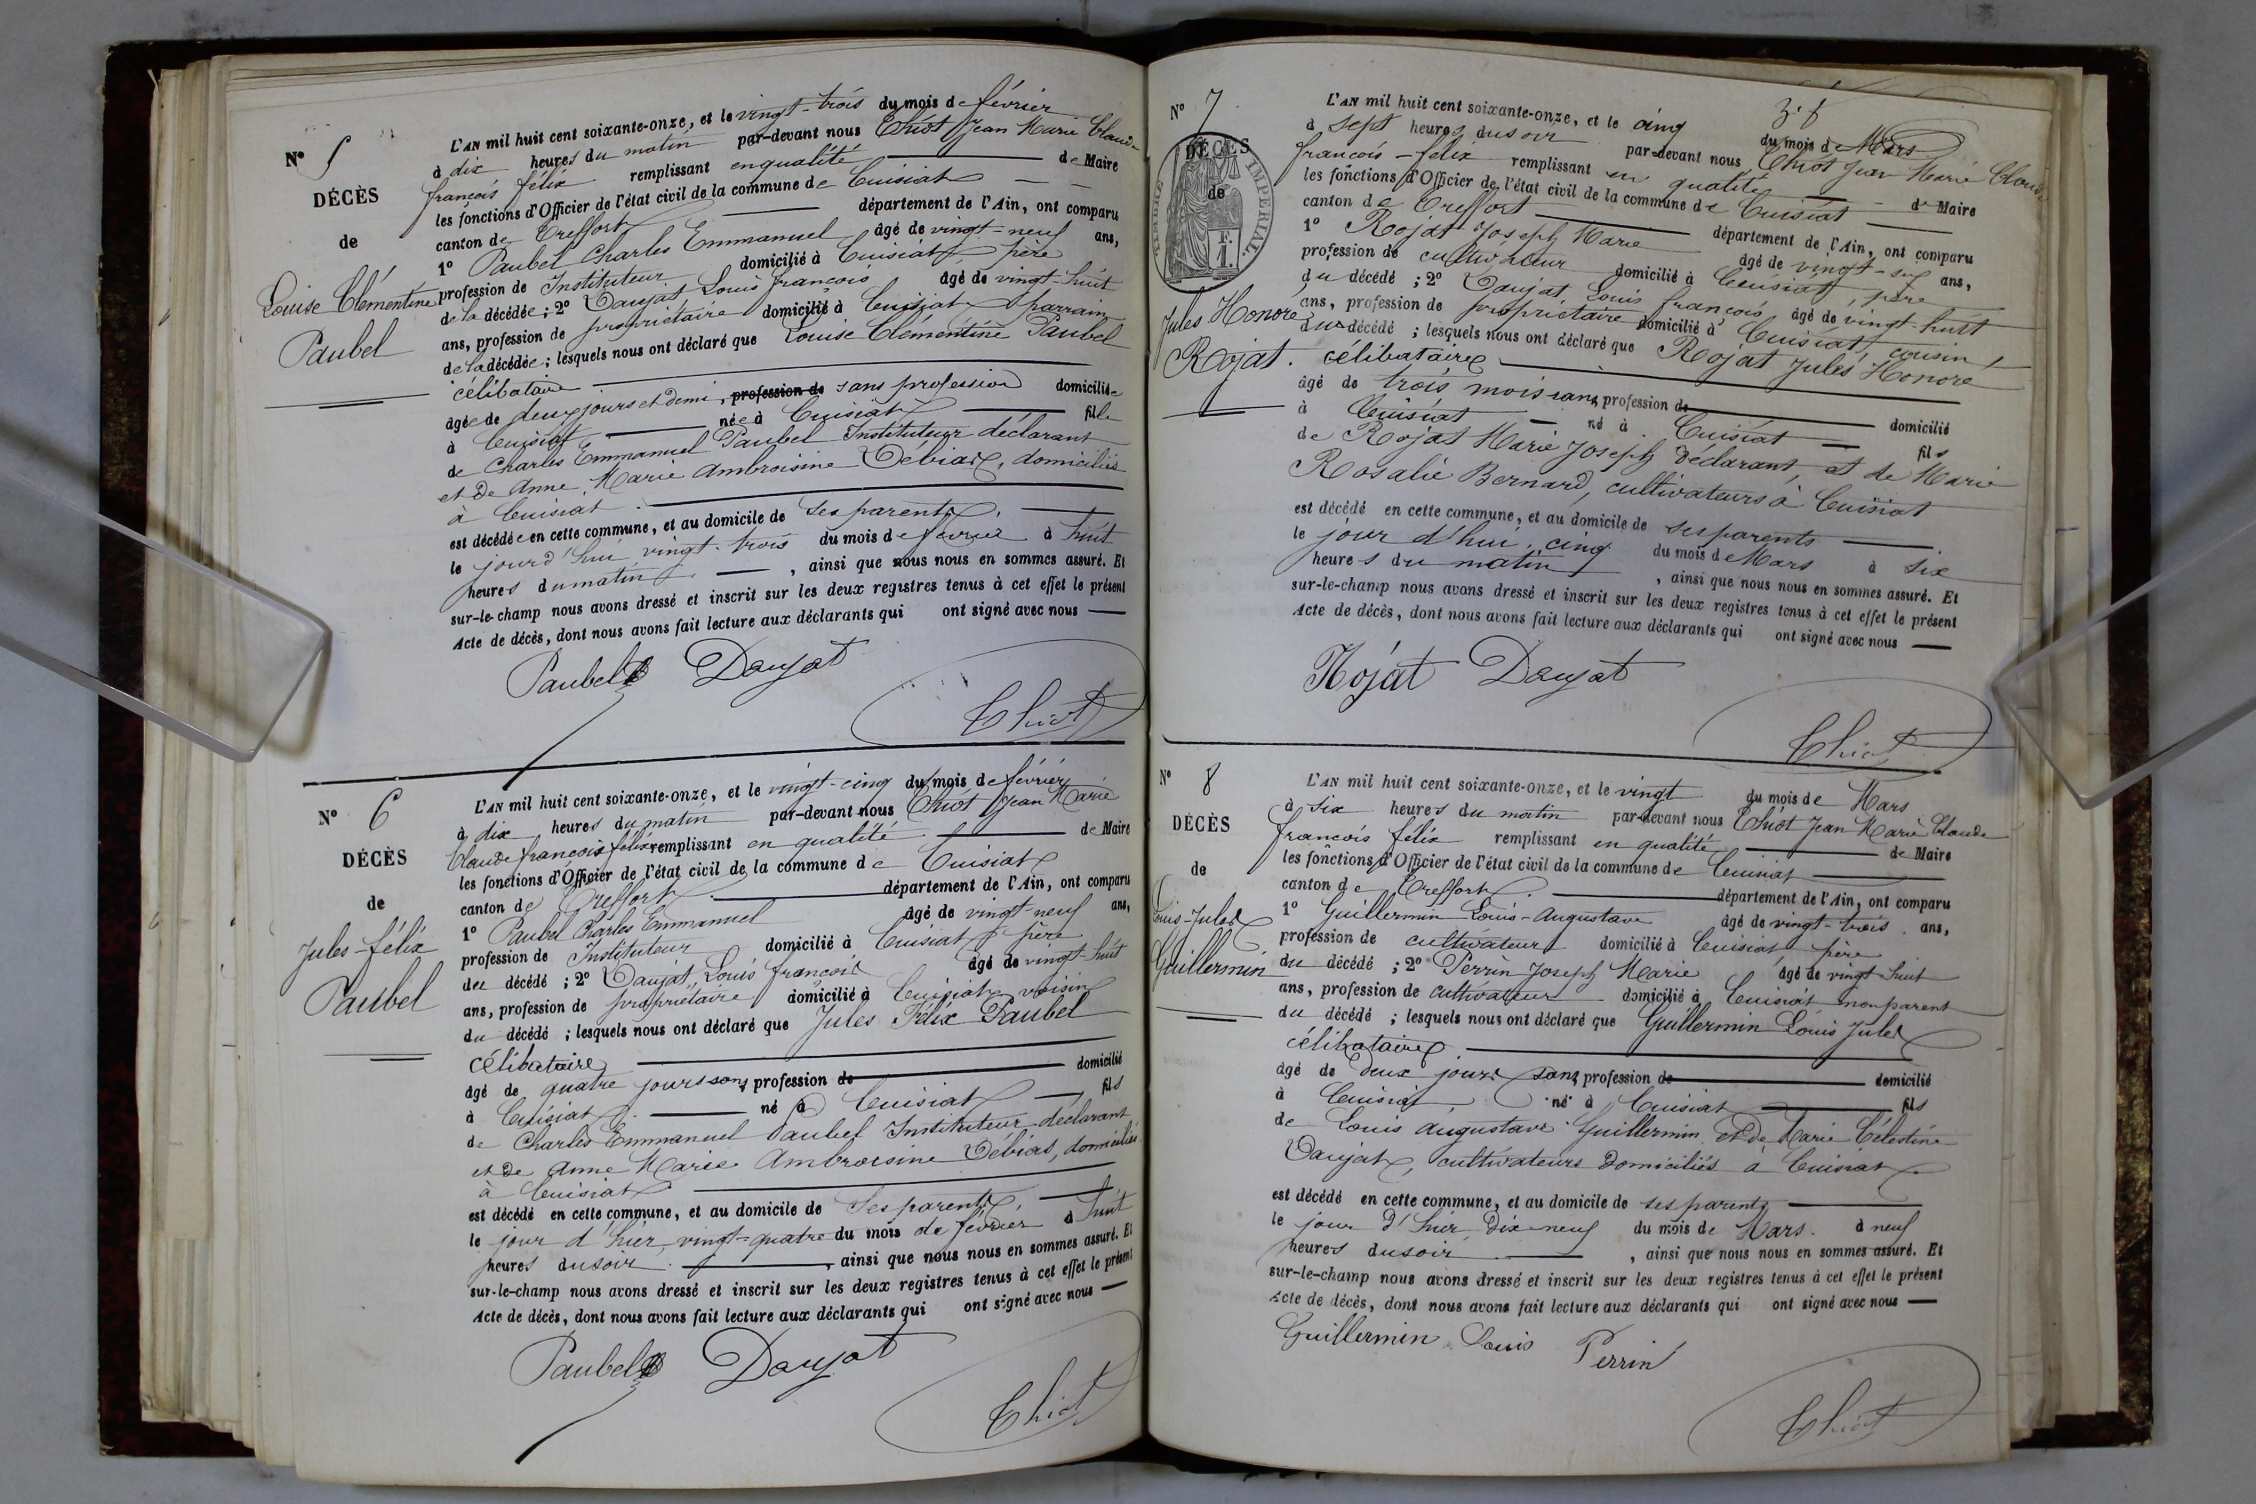 N° 5
DÉCÈS
de
Louise Clémentine
Paubel
L'AN mil huit cent soixante-onze, et le vingt-trois du mois de février
à dix heures du matin par-devant nous Chiot Jean Marie Claude
françois félix remplissant en qualité de Maire
les fonctions d'Officier de l'état civil de la commune de Cuisiat
canton de Treffort département de l'Ain, ont comparu
1° Paubel Charles Emmanuel âgé de vingt-neuf ans,
profession de Instituteur domicilié à Cuisiat père
de la décédée ; 2° Daujat Louis françois âgé de vingt-huit
ans, profession de propriétaire domicilié à Cuisiat parrain
de la décédée ; lesquels nous ont déclaré que Louise Clémentine Paubel
célibataire
âgée de deux jours et demi, profession de sans profession domiciliée
à Cuisiat née à Cuisiat fille
de Charles Emmanuel Paubel Instituteur déclarant
et de Anne Marie Ambroisine Débias, domiciliés
à Cuisiat
est décédée en cette commune, et au domicile de ses parents
le jourd'hui vingt-trois du mois de février à huit
heures du matin, ainsi que nous nous en sommes assuré. Et
sur-le-champ nous avons dressé et inscrit sur les deux registres tenus à cet effet le présent
Acte de décès, dont nous avons fait lecture aux déclarants qui ont signé avec nous
Paubel Daujat
Chiot
N° 6
DÉCÈS
de
Jules-félix
Paubel
L'AN mil huit cent soixante-onze, et le vingt-cinq du mois de février
à dix heures du matin par-devant nous Chiot Jean Marie
Claude françois félix remplissant en qualité de Maire
les fonctions d'Officier de l'état civil de la commune de Cuisiat
canton de Treffort département de l'Ain, ont comparu
1° Paubel Charles Emmanuel âgé de vingt-neuf ans,
profession de Instituteur domicilié à Cuisiat père
du décédé ; 2° Daujat Louis françois âgé de vingt-huit
ans, profession de propriétaire domicilié à Cuisiat voisin
du décédé ; lesquels nous ont déclaré que Jules Félix Paubel
célibataire
âgé de quatre jours sans profession de domicilié
à Cuisiat né à Cuisiat fils
de Charles Emmanuel Paubel Instituteur déclarant
et de Anne Marie Ambroisine Débias, domiciliés
à Cuisiat
est décédé en cette commune, et au domicile de ses parents,
le jour d'hier, vingt-quatre du mois de février à huit
heures du soir, ainsi que nous nous en sommes assuré. Et
sur-le-champ nous avons dressé et inscrit sur les deux registres tenus à cet effet le présent
Acte de décès, dont nous avons fait lecture aux déclarants qui ont signé avec nous
Paubel Daujat
Chiot
N° 7
DÉCÈS
de
TIMBRE IMPERIAL
1 F.
Jules Honoré
Rojat.
L'AN mil huit cent soixante-onze, et le cinq du mois de Mars
à sept heures du soir par-devant nous Chiot Jean Marie Claude
françois-félix remplissant en qualité de Maire
les fonctions d'Officier de l'état civil de la commune de Cuisiat
canton de Treffort département de l'Ain, ont comparu
1° Rojat Joseph Marie âgé de vingt-six ans,
profession de cultivateur domicilié à Cuisiat père
du décédé ; 2° Daujat Louis françois âgé de vingt-huit
ans, profession de propriétaire domicilié à Cuisiat, cousin,
du décédé ; lesquels nous ont déclaré que Rojat Jules Honoré
célibataire
âgé de trois mois sans profession de domicilié
à Cuisiat né à Cuisiat fils
de Rojat Marie Joseph déclarant, et de Marie
Rosalie Bernard, cultivateurs à Cuisiat
est décédé en cette commune, et au domicile de ses parents
le jour d'hui, cinq du mois de Mars à six
heures du matin, ainsi que nous nous en sommes assuré. Et
sur-le-champ nous avons dressé et inscrit sur les deux registres tenus à cet effet le présent
Acte de décès, dont nous avons fait lecture aux déclarants qui ont signé avec nous
Rojat Daujat
Chiot
N° 8
DÉCÈS
de
Louis-Jules
Guillermin
L'AN mil huit cent soixante-onze, et le vingt du mois de Mars
à six heures du matin par-devant nous Chiot Jean Marie Claude
françois félix remplissant en qualité de Maire
les fonctions d'Officier de l'état civil de la commune de Cuisiat
canton de Treffort département de l'Ain, ont comparu
1° Guillermin Louis-Augustave âgé de vingt-trois ans,
profession de cultivateur domicilié à Cuisiat père
du décédé ; 2° Perrin Joseph Marie âgé de vingt-huit
ans, profession de cultivateur domicilié à Cuisiat non parent
du décédé ; lesquels nous ont déclaré que Guillermin Louis Jules
célibataire
âgé de deux jours sans profession de domicilié
à Cuisiat né à Cuisiat fils
de Louis Augustave Guillermin et de Marie Célestine
Daujat, cultivateurs domiciliés à Cuisiat
est décédé en cette commune, et au domicile de ses parents
le jour d'hier, dix-neuf du mois de Mars à neuf
heures du soir, ainsi que nous nous en sommes assuré. Et
sur-le-champ nous avons dressé et inscrit sur les deux registres tenus à cet effet le présent
Acte de décès, dont nous avons fait lecture aux déclarants qui ont signé avec nous
Guillermin Louis Perrin
Chiot